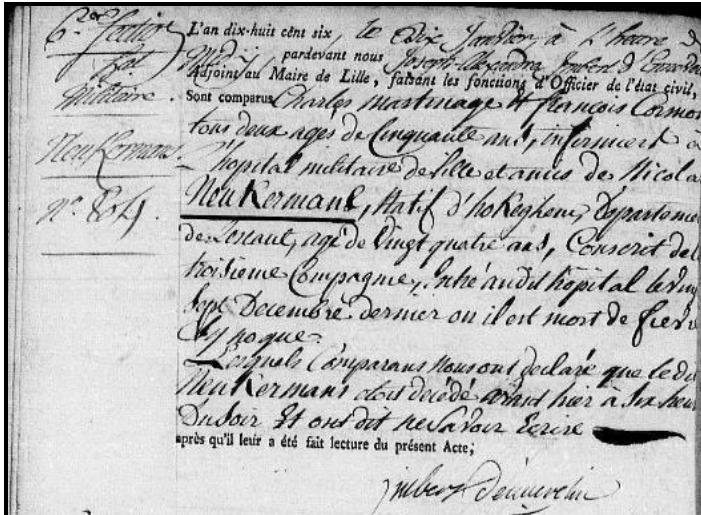 6.e Section
Hal
militaire.
Neukermans.
N.º 804.
L'an dix-huit cent six, le dix Janvier, à l'heure de
Midi, pardevant nous Joseph-Alexandre Imbert d'
Adjoint au Maire de Lille, faisant les fonctions d'Officier de l'état civil,
Sont comparus Charles Martinage & françois Cormon
tous deux agés de Cinquante ans, infirmiers à
L'hopital militaire de Lille et amis de Nicolas
Neukermans, Natif d'hokeghem, Departeme
de Lescaut, agé de Vingt quatre ans, Conscrit de l
troisieme Compagnie, Entré audit hôpital le vin
Sept Decembre dernier ou il est mort de fievre
Lesquels Comparans nous ont declaré que le di
Neukermans etoit decédé avant hier à Six heur
Du soir Et ont dit ne Savoir Ecrire
après qu'il leur a été fait lecture du présent Acte;